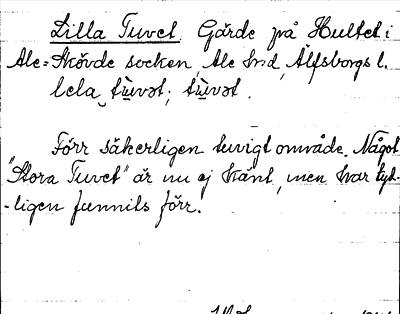 Lilla Tuvet. Gärde på Hultet i
Ale=Skövde socken, Ale hrd, Älfsborgs l.
lela tùvət; tùvət.
Förr säkerligen tuvigt område. Något
"Stora Tuvet" är nu ej känt, men har tyd-
-ligen funnits förr.